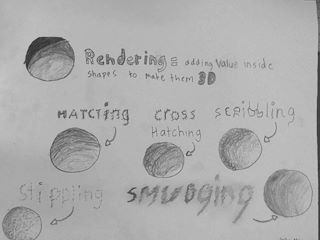 Rendering = adding value inside
shapes to make them 3D
HATCHING
CROSS
Hatching
SCRIBBLING
Stippling
SMUDGING